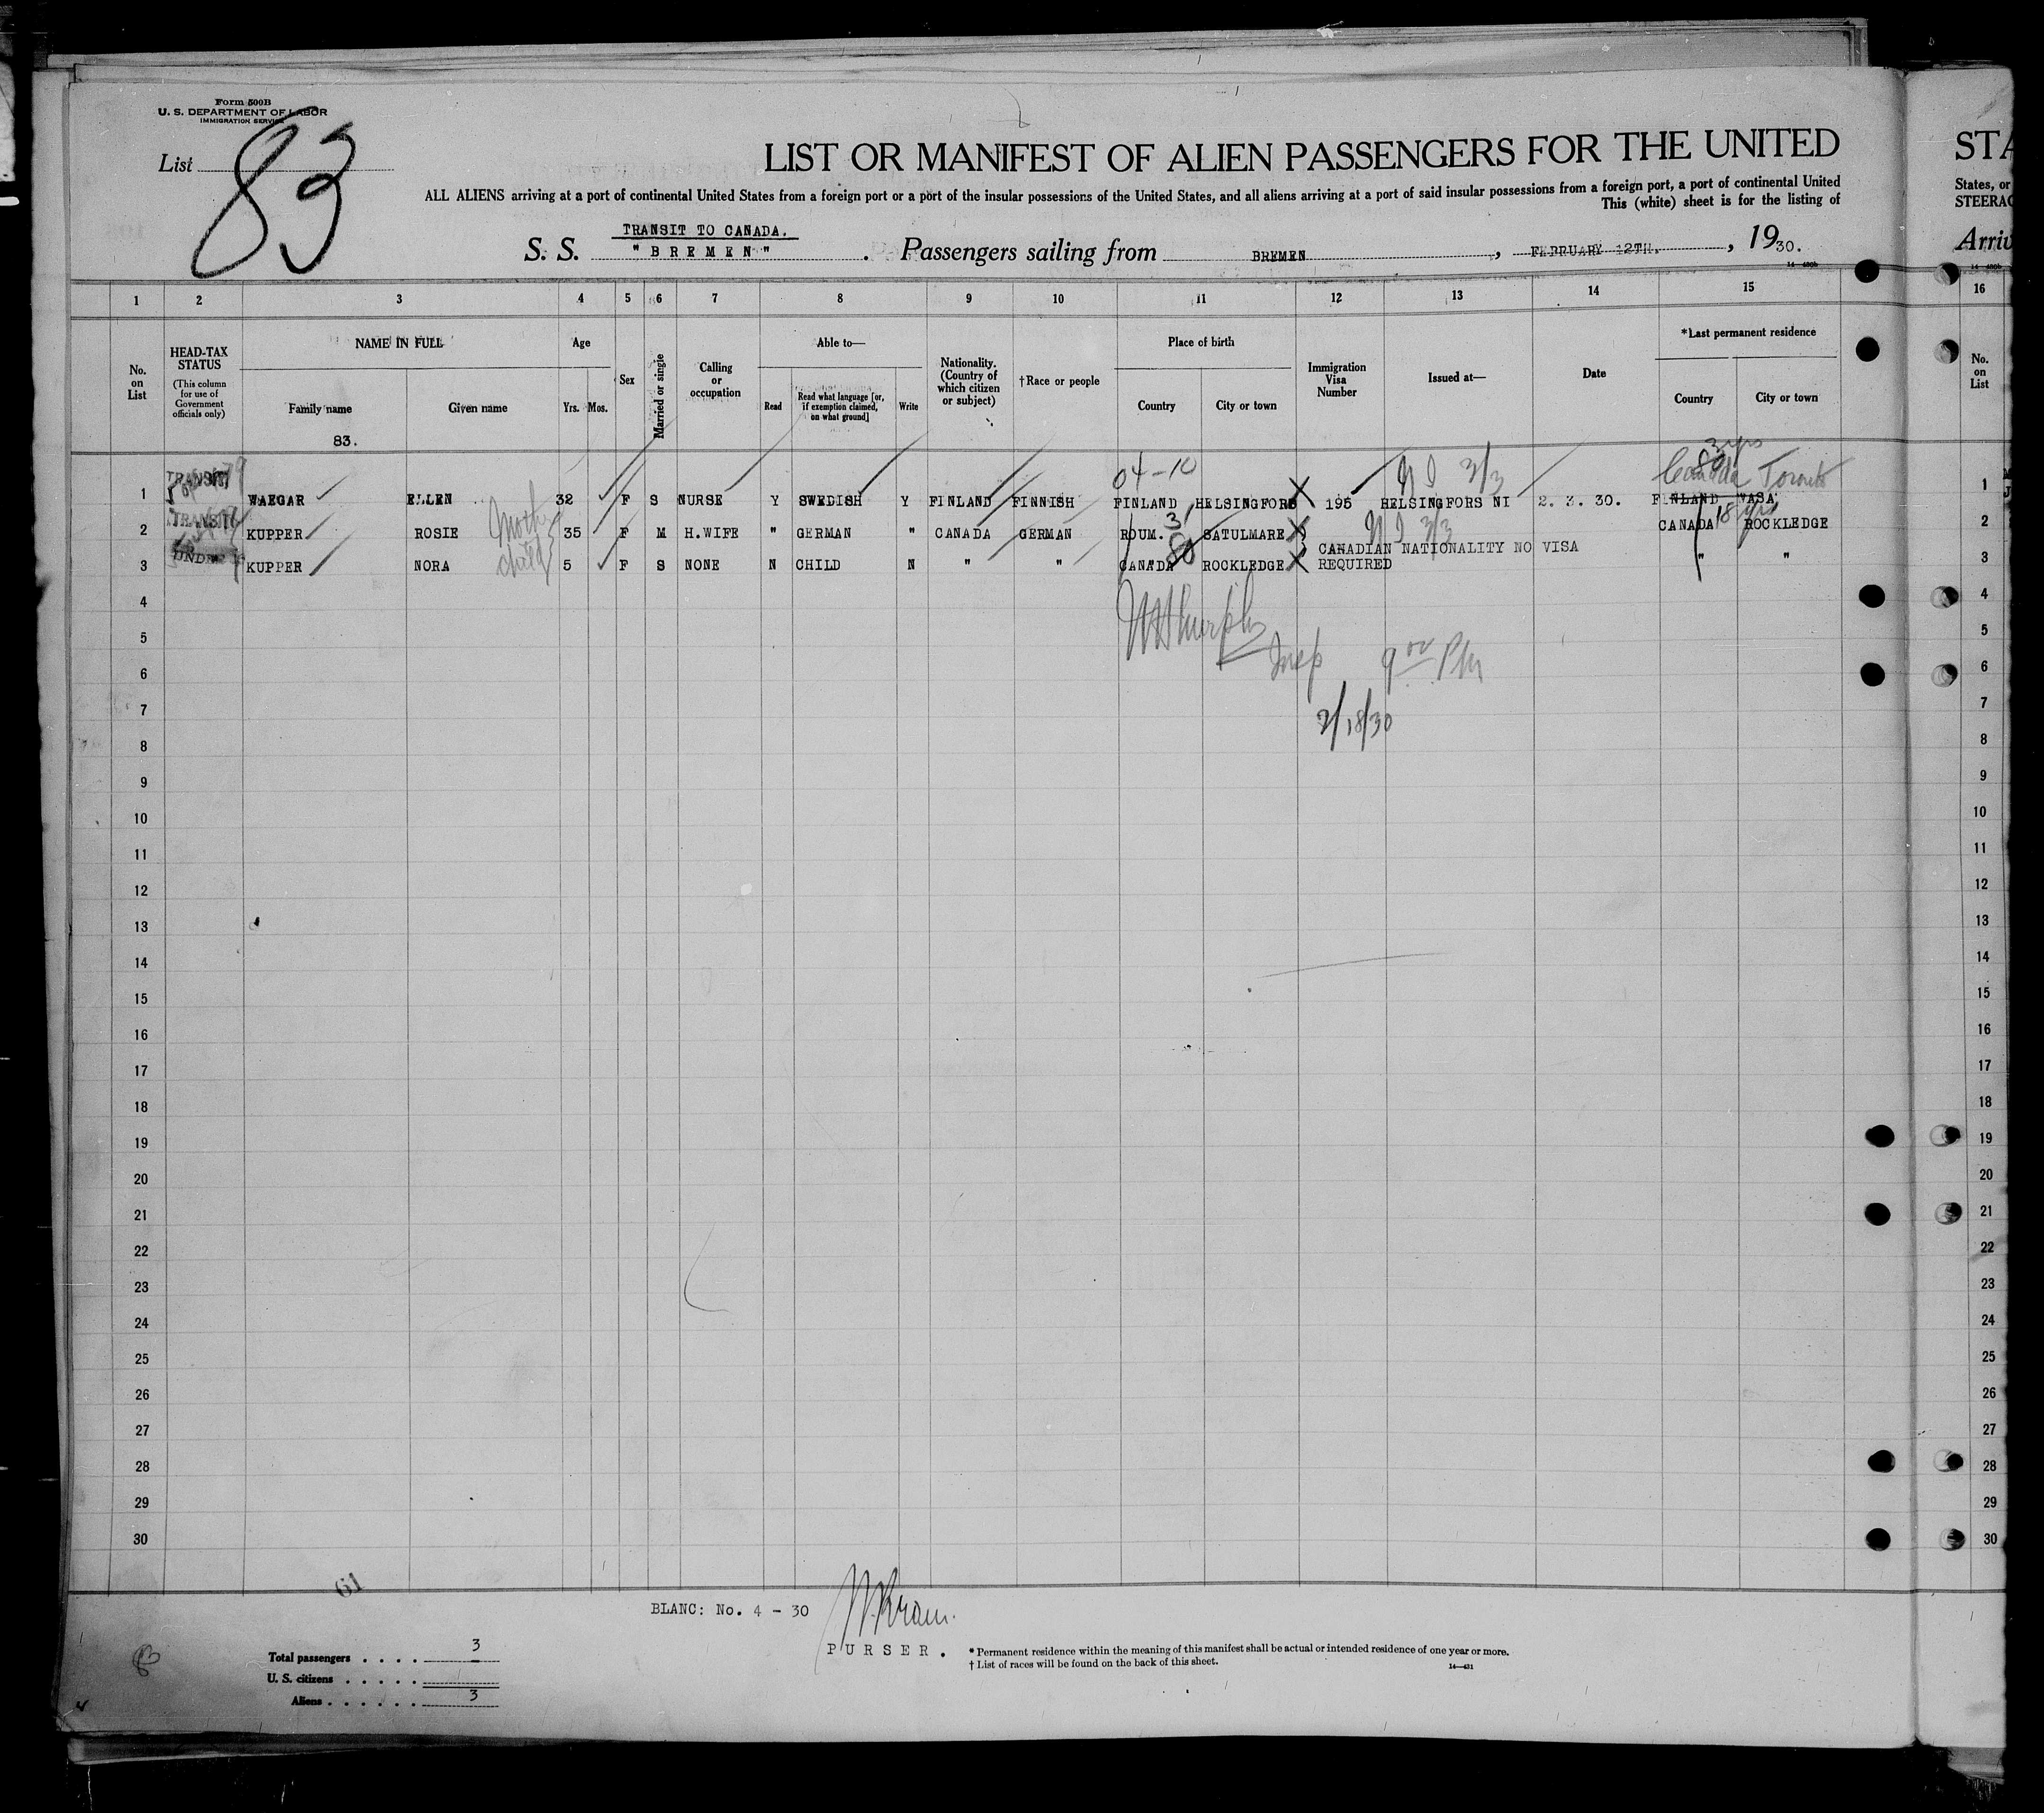 Form 500B
U. S. DEPARTMENT OF LABOR
IMMIGRATION SERVICE
List 83
LIST OR MANIFEST OF ALIEN PASSENGERS FOR THE UNITED
ALL ALIENS arriving at a port of continental United States from a foreign port or a port of the insular possessions of the United States, and all aliens arriving at a port of said insular possessions from a foreign port, a port of continental United
This (white) sheet is for the listing of
TRANSIT TO CANADA.
S. S. "BREMEN". Passengers sailing from BREMEN, FEBRUARY 12TH., 1930.
14—430b
STA
States, or
STEERAG
Arriv
1 2 3 4 5 6 7 8 9 10 11 12 13 14 15 16
No. on List
HEAD-TAX STATUS (This column for use of Government officials only)
NAME IN FULL
Family name
Given name
83.
Age
Yrs. Mos.
Sex
Married or single
Calling or occupation
Able to—
Read
Read what language [or, if exemption claimed, on what ground]
Write
Nationality. (Country of which citizen or subject)
†Race or people
Place of birth
Country
City or town
Immigration Visa Number
Issued at—
Date
*Last permanent residence
Country
City or town
No. on List
04-10 NI 3/3 3 yrs Canada Toronto
1 TRANSIT WAEGAR ELLEN 32 F S NURSE Y SWEDISH Y FINLAND FINNISH FINLAND HELSINGFORS 195 HELSINGFORS NI 2. 3. 30. FINLAND WASA 1
2 TRANSIT KUPPER ROSIE Mother 35 F M H.WIFE " GERMAN " CANADA GERMAN ROUM. SATULMARE NI 3/3 CANADA 18 yrs ROCKLEDGE 2
CANADIAN NATIONALITY NO VISA
3 UNDER KUPPER NORA child 5 F S NONE N CHILD N " " CANADA ROCKLEDGE REQUIRED " " 3
4 4
5 5
Insp 9 00 PM
6 6
7 2/18/30 7
8 8
9 9
10 10
11 11
12 12
13 13
14 14
15 15
16 16
17 17
18 18
19 19
20 20
21 21
22 22
23 23
24 24
25 25
26 26
27 27
28 28
29 29
30 30
61
BLANC: No. 4 - 30
PURSER.
* Permanent residence within the meaning of this manifest shall be actual or intended residence of one year or more.
† List of races will be found on the back of this sheet.
14—431
Total passengers . . . . 3
U. S. citizens . . . . .
Aliens . . . . . . 3